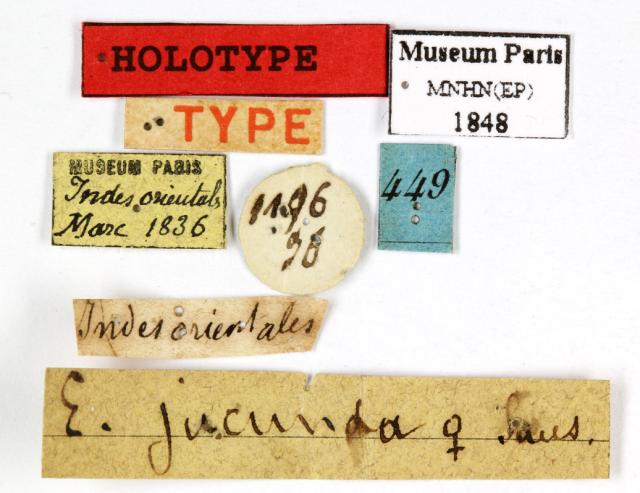 HOLOTYPE
Museum Paris
MNHN(EP)
1848
TYPE
MUSEUM PARIS
Indes orientales
Marc 1836
1196
36
449
Indes orientales
E. jucunda ♀ Saus.